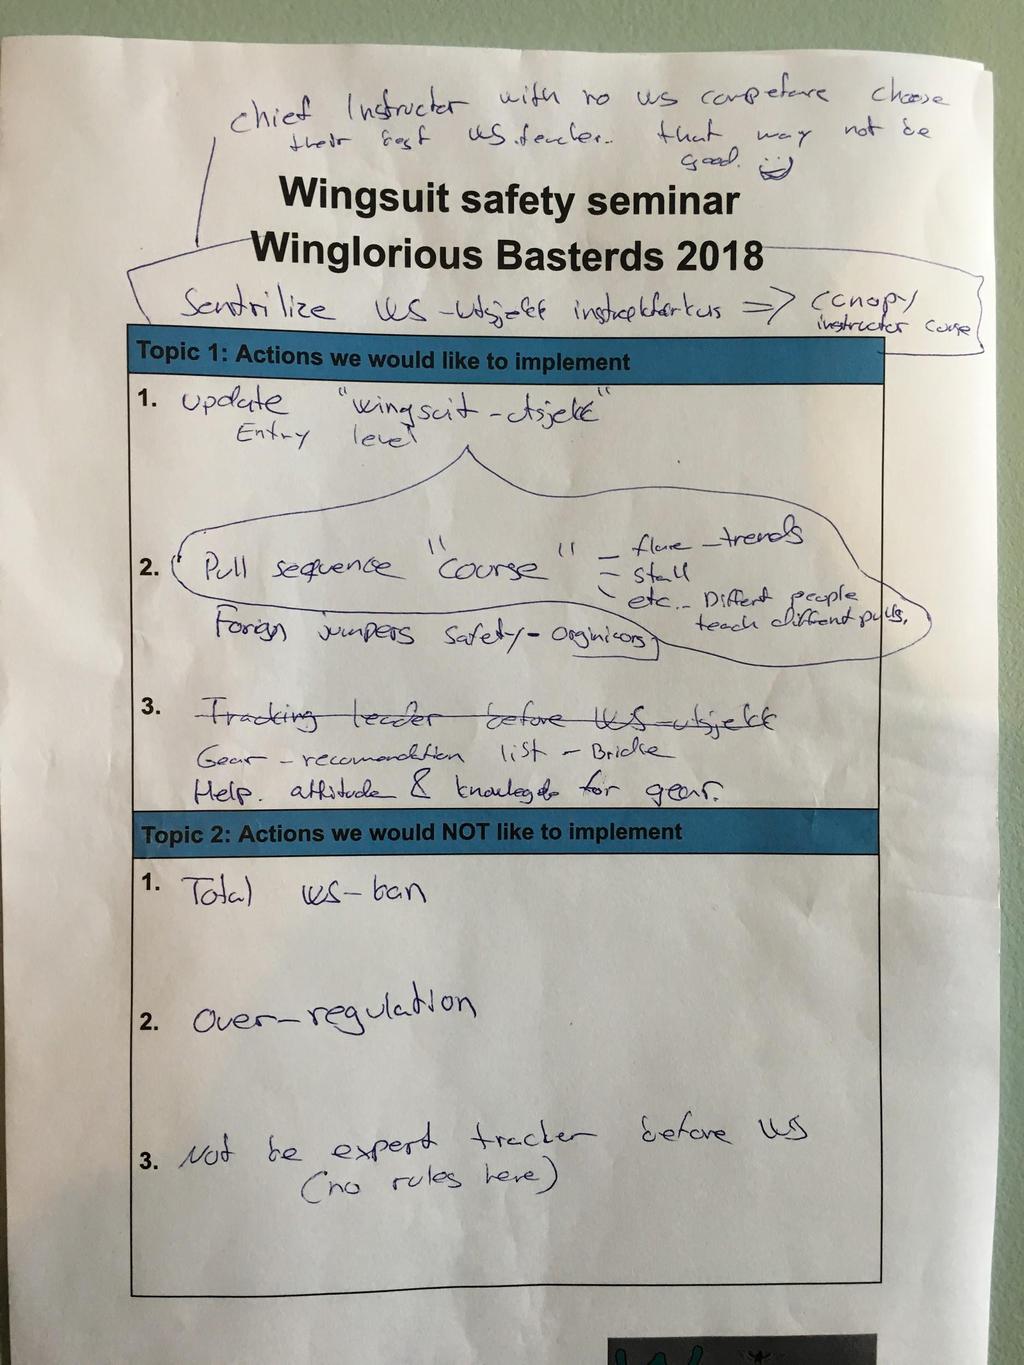 chief Instructor with no WS competance choose
their best WS.teacher.. that may not be
good.
Wingsuit safety seminar
Winglorious Basterds 2018
Sentrilize WS-utsjekk instruktørkurs => (canopy
instructor course
Topic 1: Actions we would like to implement
1. update "wingsuit-utsjekk"
Entry level
2. Pull sequence "course" - flare-trends
- stall
- etc.. Different people
teach different pulls.
Forign jumpers safety-orginisors
3. Tracking leader before WS-utsjekk
Gear-recomendation list - Bridle
Help. attitude & knowlegde for gear.
Topic 2: Actions we would NOT like to implement
1. Total WS-ban
2. Over-regulation
3. Not be expert tracker before WS
(no rules here)